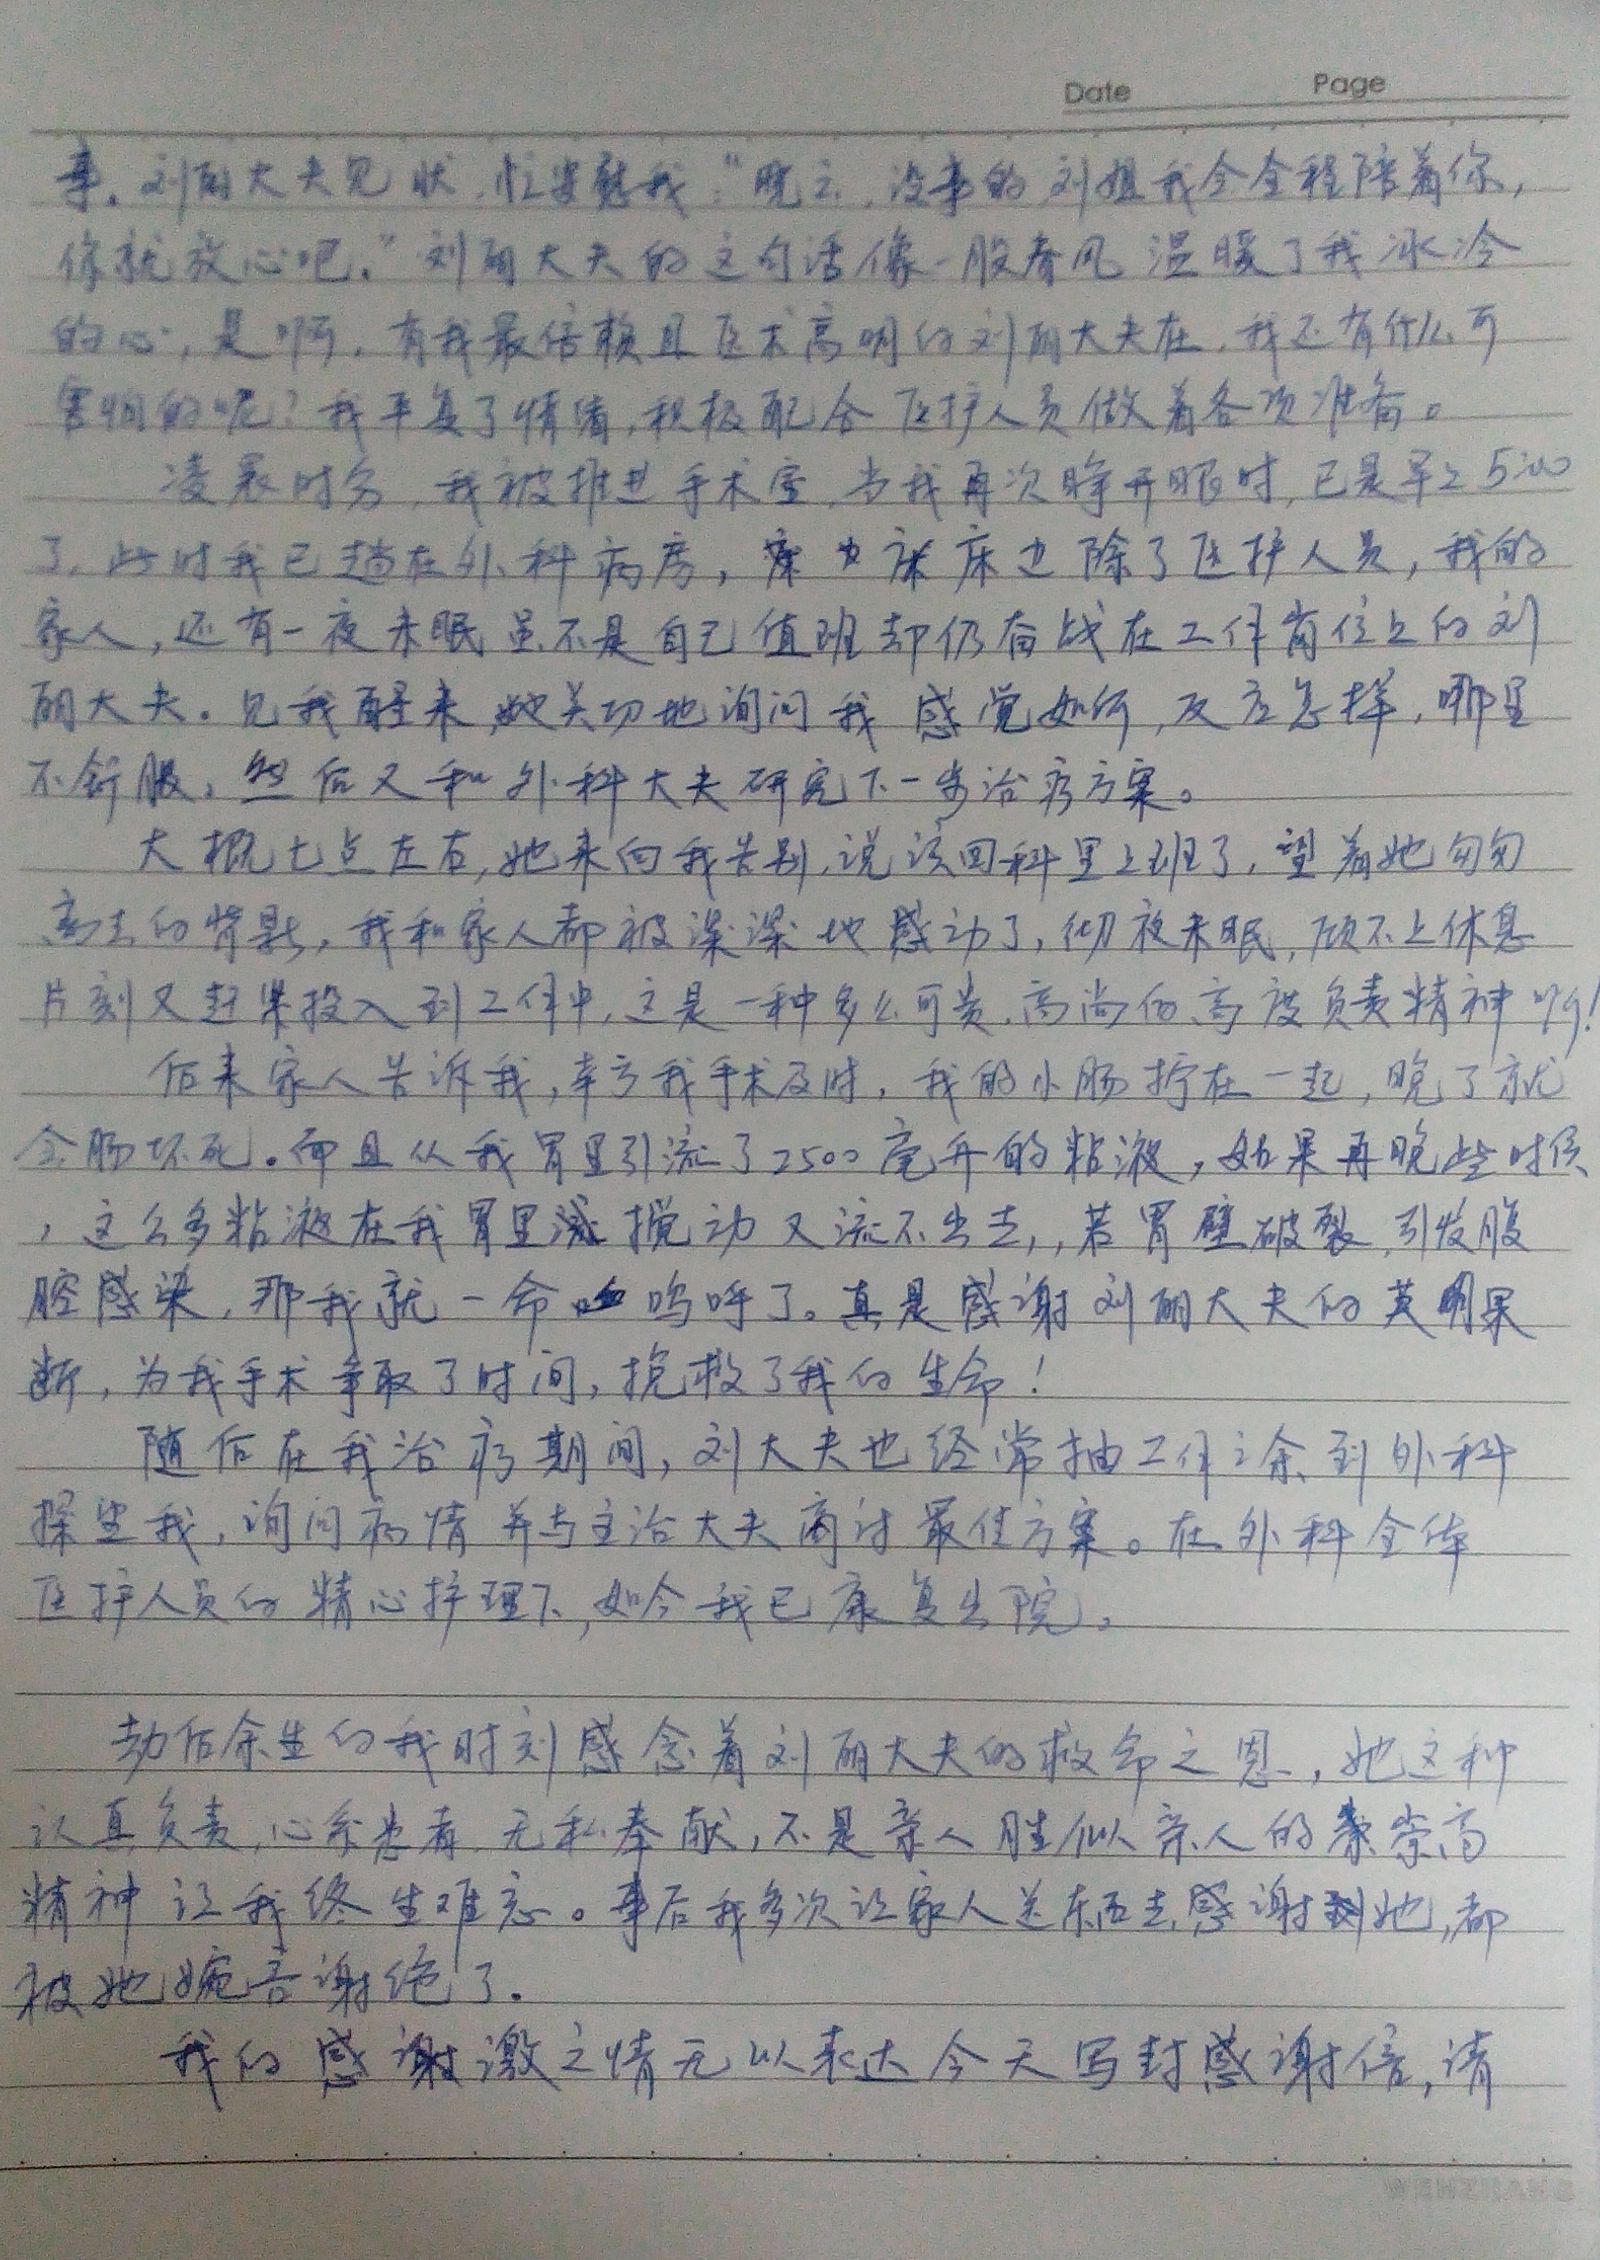 Date Page
事。刘丽大夫见状,忙安慰我:"晓云,没事的刘姐我今全程陪着你,
你就放心吧。"刘丽大夫的这句话像一股春风温暖了我冰冷
的心,是啊,有我最信赖且医术高明的刘丽大夫在,我还有什么可
害怕的呢?我平复了情绪,积极配合医护人员做着各项准备。
凌晨时分,我被推进手术室,当我再次睁开眼时,已是早上5:00
了,此时我已趟在外科病房,床边除了医护人员,我的
家人,还有一夜未眠虽不是自己值班却仍奋战在工作岗位上的刘
丽大夫。见我醒来,她关切地询问我感觉如何,反应怎样,哪里
不舒服,然后又和外科大夫研究下一步治疗方案。
大概七点左右,她来向我告别,说该回科里上班了,望着她匆匆
离去的背影,我和家人都被深深地感动了,彻夜未眠,顾不上休息
片刻又赶紧投入到工作中,这是一种多么可贵、高尚的高度负责精神啊!
后来家人告诉我,幸亏我手术及时,我的小肠拧在一起,晚了就
会肠坏死。而且从我胃里引流了2500毫升的粘液,如果再晚些时候
,这么多粘液在我胃里搅动又流不出去,,若胃壁破裂,引发腹
腔感染,那我就一命呜呼了。真是感谢刘丽大夫的英明果
断,为我手术争取了时间,挽救了我的生命!
随后在我治疗期间,刘大夫也经常抽工作之余到外科
探望我,询问病情并与主治大夫商讨最佳方案。在外科全体
医护人员的精心护理下,如今我已康复出院。
劫后余生的我时刻感念着刘丽大夫的救命之恩,她这种
认真负责,心系患者,无私奉献,不是亲人胜似亲人的崇高
精神让我终生难忘。事后我多次让家人送东西去感谢她,都
被她婉言谢绝了。
我的感激之情无以表达今天写封感谢信,请